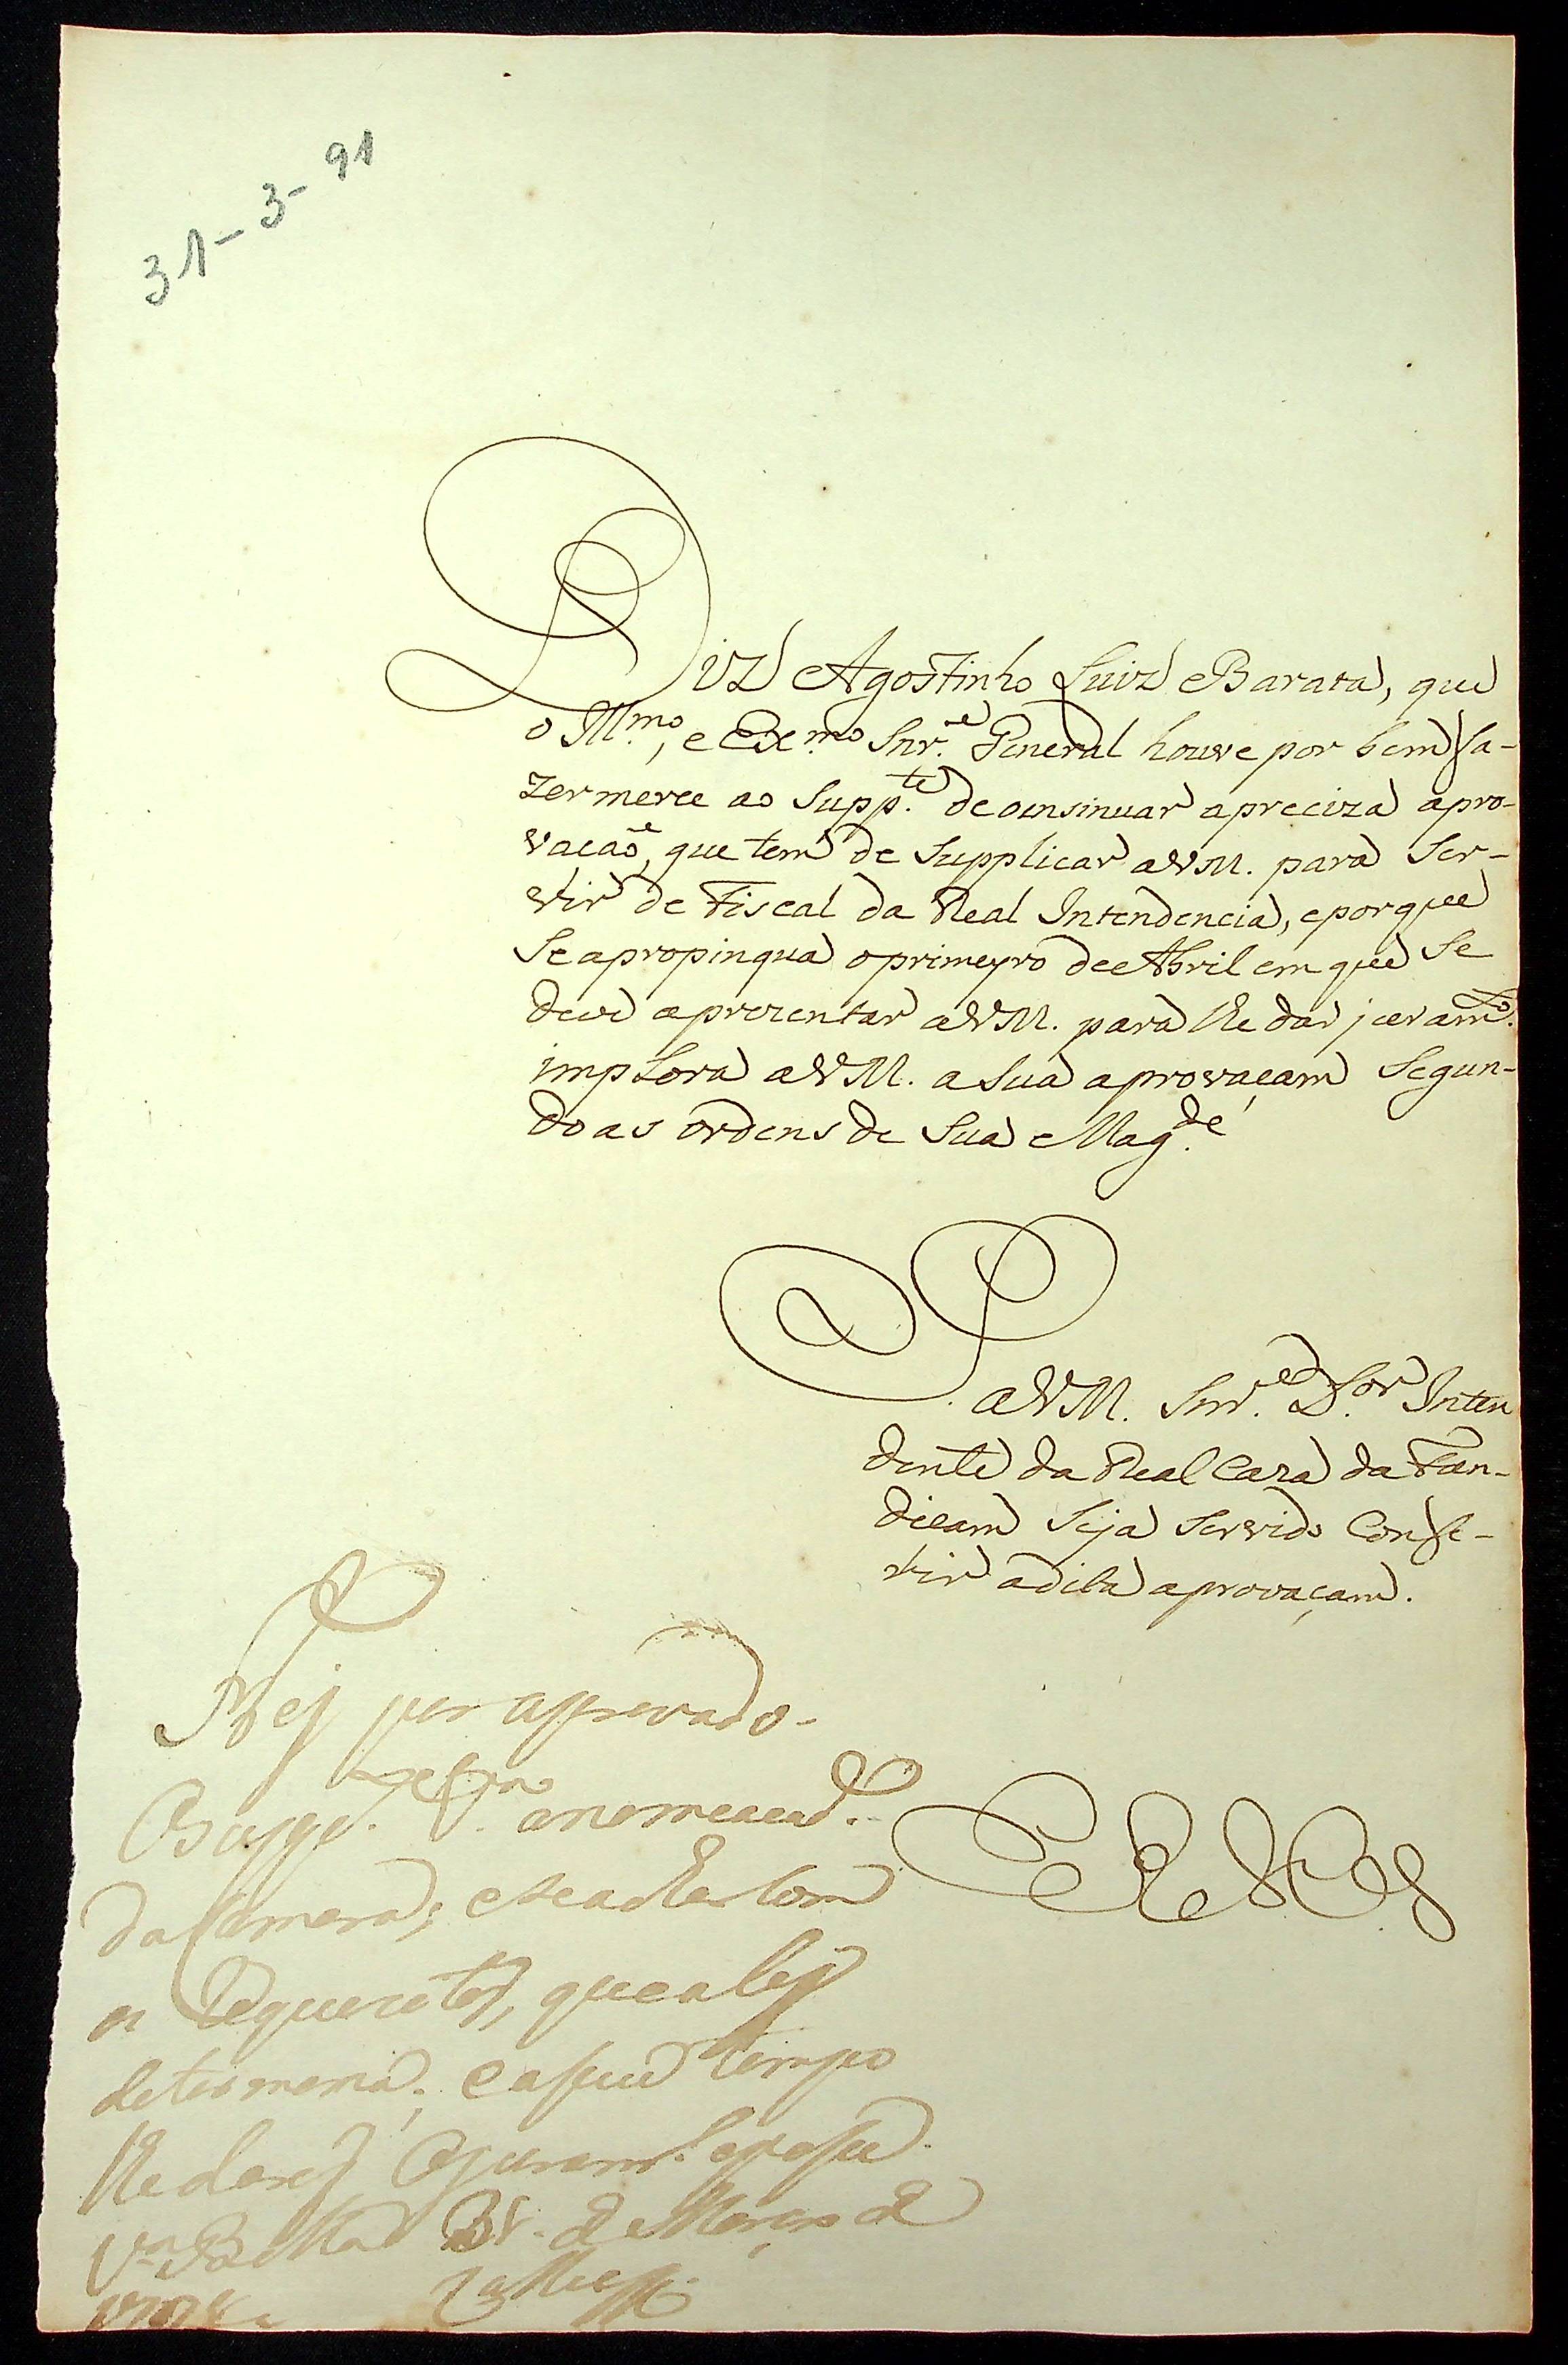 31-3-91
Diz Agostinho Luiz Barata, que
o Illmo., e Exmo. Snr.e General houve por bem fa-
zer merce ao Supp.te de o insinuar a preciza apro-
vacaõ, que tem de Supplicar a VM. para Ser-
vir de Fiscal da Real Intendencia, e porque
Se apropinqua o primeyro de Abril em que Se
deve aprezentar a VM. para lhe dar juram.to
implora a VM. a Sua aprovaçam Segun-
do as ordens de Sua Mag.de
P
a VM. Snr.e D.or Inten
dente da Real Caza da Fun-
dicam Seja Servido Confe-
rir a dita aprovaçam.
E R M.ce
Hej por aprovado
O Supp.e a nomeacaõ
da Camera;
os Requezitos, que a Ley
determina; e a seu tempo
lhe darej o juram.to
V.a 31 de Março de